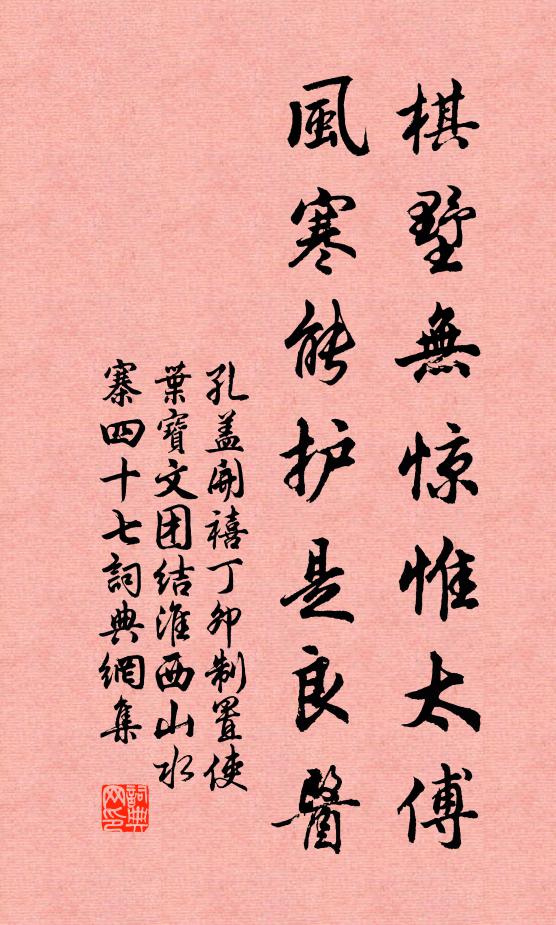 棋墅無惊惟太傅
風寒能护是良醫
孔盖開禧丁卯制置使
葉寶文团结淮西山水
寨四十七詞典網集
詞典
网印